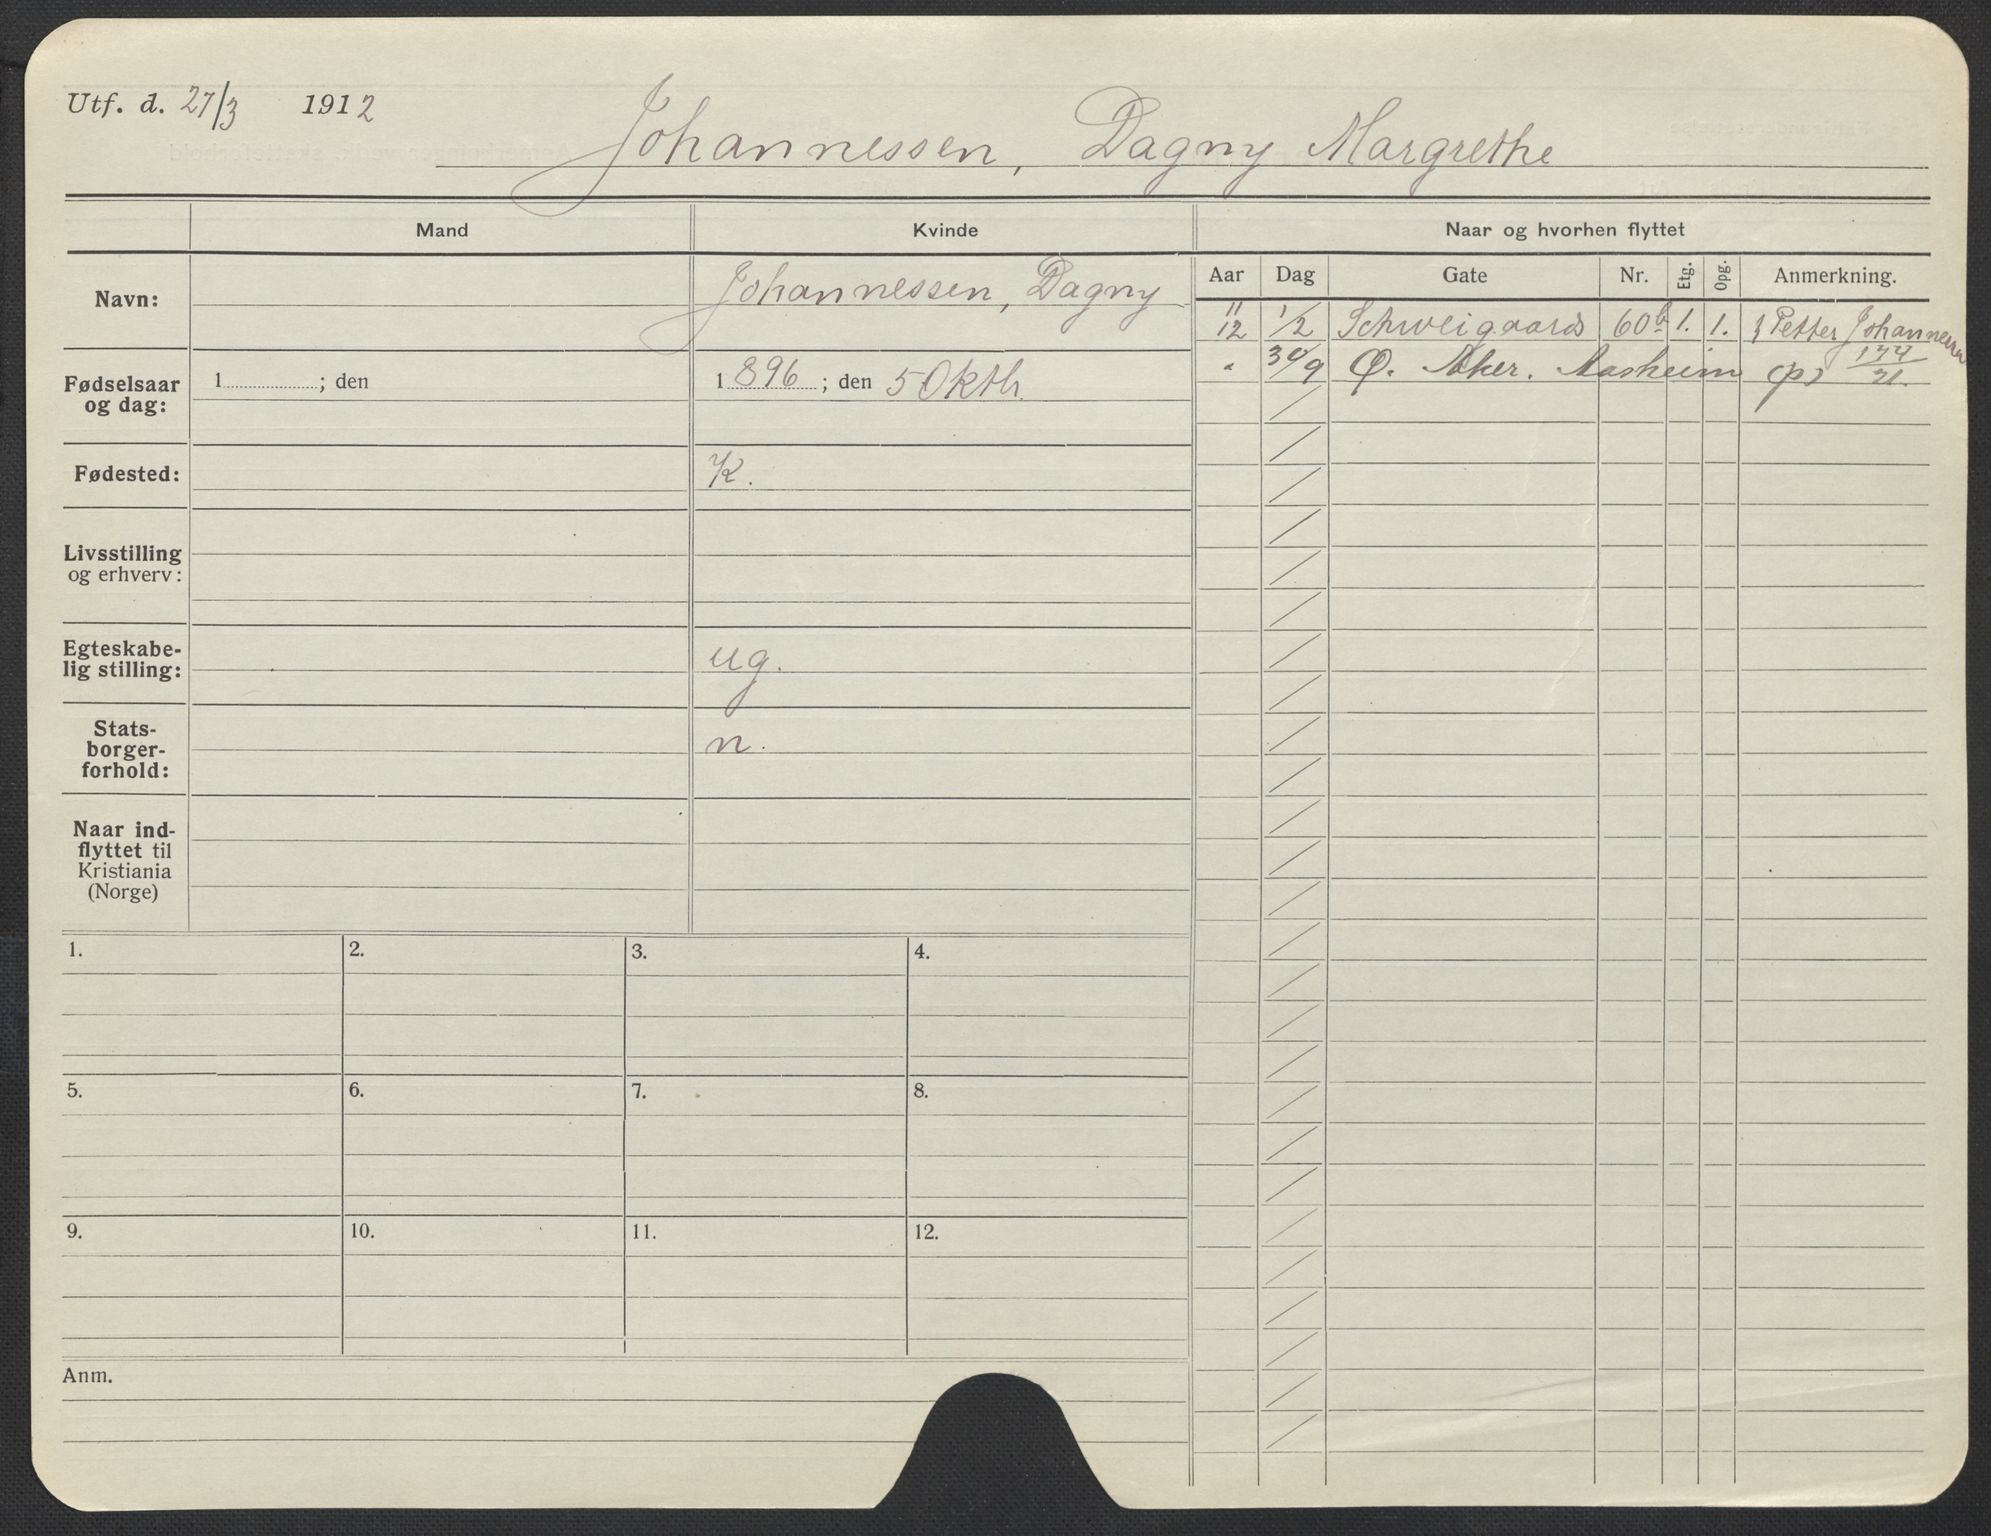 Utf. d. 27/3 1912
Johannessen, Dagny Margrethe
Mand Kvinde Naar og hvorhen flyttet
Aar Dag Gate Nr. Etg. Opg. Anmerkning.
Navn: Johannessen, Dagny
11
12 1/2 Schweigaards 60b 1. 1. Petter Johannessen
" 30/9 Ø. Aker. Aasheim
Fødselsaar
og dag:
1 ; den 1896 ; den 5 Oktbr.
Fødested: K.
Livsstilling
og erhverv:
Egteskabe-
lig stilling: ug.
Stats-
borger-
forhold: n.
Naar ind-
flyttet til
Kristiania
(Norge)
1. 2. 3. 4.
5. 6. 7. 8.
9. 10. 11. 12.
Anm.